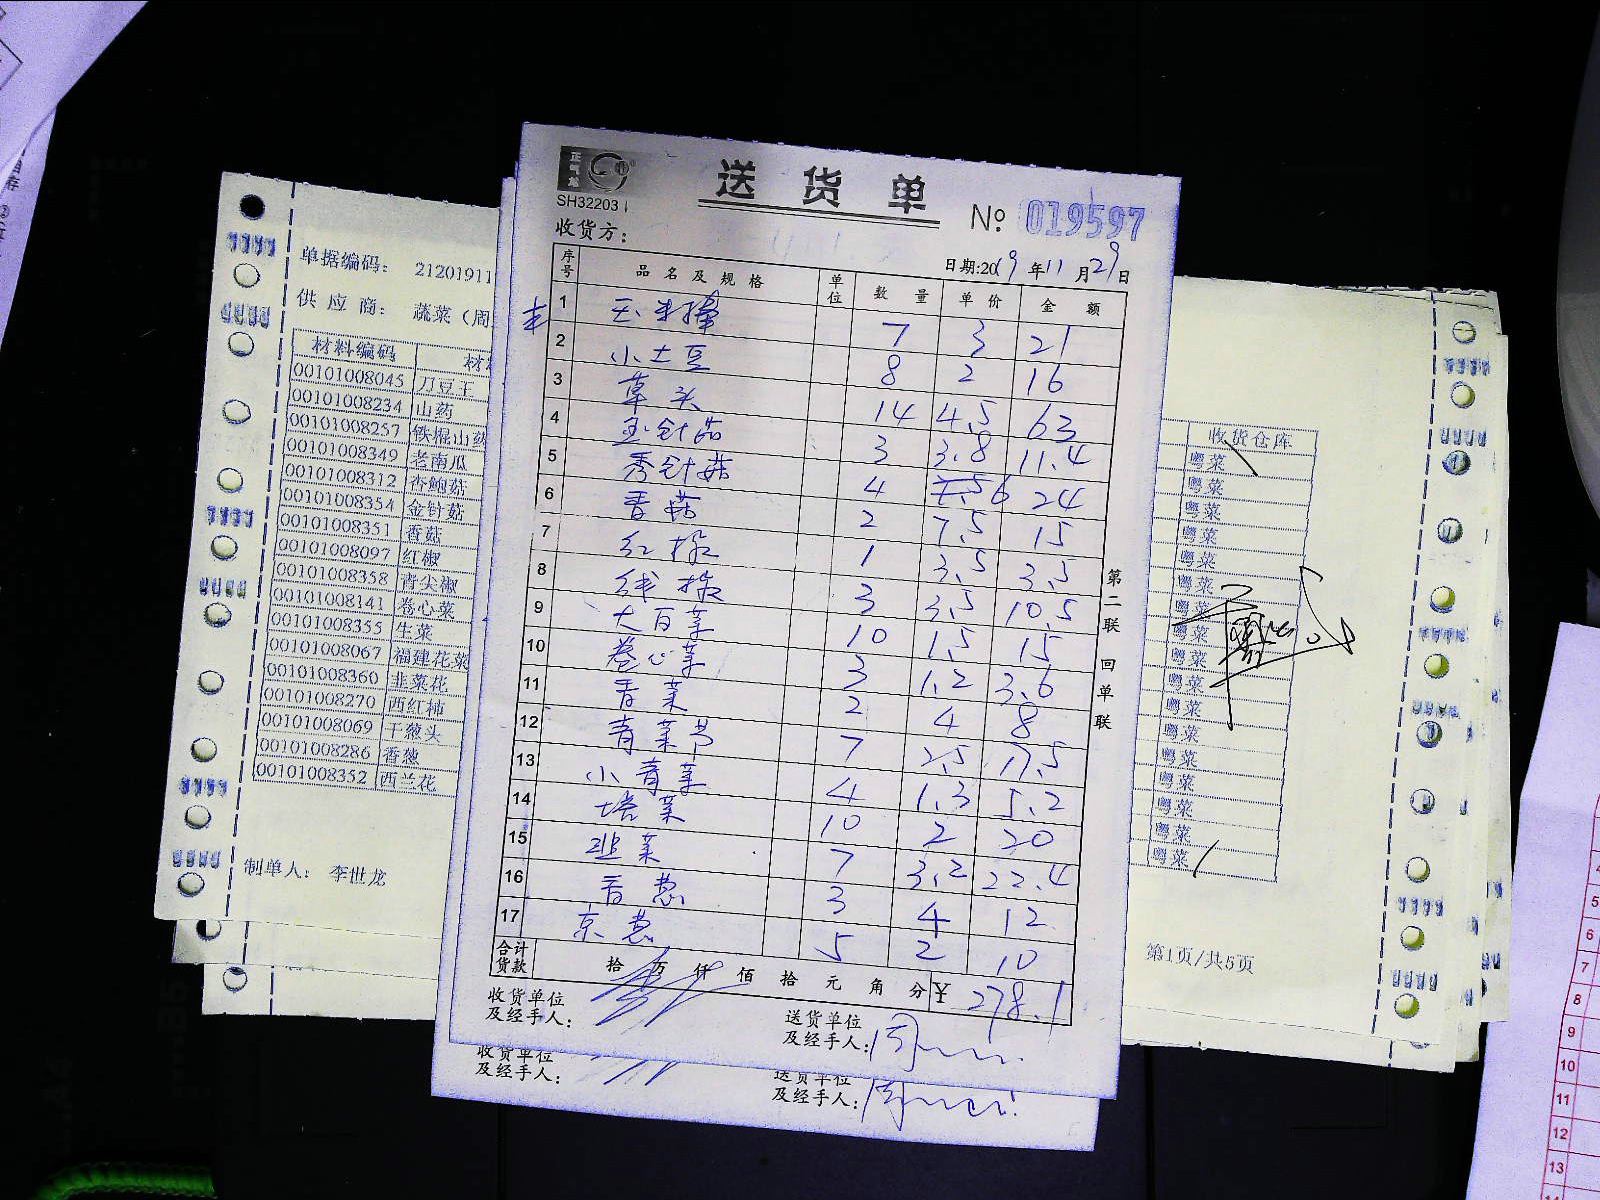 正气龙
SH32203
送货单
№ 019597
收货方：
日期:2019年11月29日
序号 品名及规格 单位 数量 单价 金额
1 玉米棒 7 3 21
2 小土豆 8 2 16
3 草头 14 4.5 63
4 金针茹 3 3.8 11.4
5 秀针菇 4 6 24
6 香菇 2 7.5 15
7 红椒 1 3.5 3.5
8 线椒 3 3.5 10.5
9 大白菜 10 1.5 15
10 卷心菜 3 1.2 3.6
11 香菜 2 4 8
12 青菜节 7 2.5 17.5
13 小青菜 4 1.3 5.2
14 塔菜 10 2 20
15 韭菜 7 3.2 22.4
16 香葱 3 4 12
17 京葱 5 2 10
合计货款 拾 万 仟 佰 拾 元 角 分 ¥ 278.1
收货单位及经手人：
送货单位及经手人：周
第二联 回单联
收货单位及经手人：
送货单位及经手人：周
单据编码： 21201911
供应商： 蔬菜（周
材料编码
00101008045 刀豆王
00101008234 山药
00101008257 铁棍山药
00101008349 老南瓜
00101008312 杏鲍菇
00101008354 金针菇
00101008351 香菇
00101008097 红椒
00101008358 青尖椒
00101008141 卷心菜
00101008355 生菜
00101008067 福建花菜
00101008360 韭菜花
00101008270 西红柿
00101008069 干葱头
00101008286 香葱
00101008352 西兰花
制单人： 李世龙
收货仓库
粤菜
粤菜
粤菜
粤菜
粤菜
粤菜
粤菜
粤菜
粤菜
粤菜
粤菜
粤菜
粤菜
粤菜
粤菜
粤菜
粤菜
第1页/共5页
5
6
7
8
9
10
11
12
13